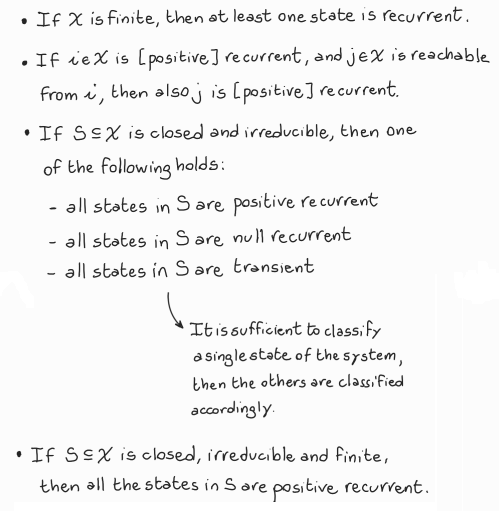 • If X is finite, then at least one state is recurrent.
• If i∈X is [positive] recurrent, and j∈X is reachable
from i, then also j is [positive] recurrent.
• If S⊆X is closed and irreducible, then one
of the following holds:
- all states in S are positive recurrent
- all states in S are null recurrent
- all states in S are transient
It is sufficient to classify
a single state of the system,
then the others are classified
accordingly.
• If S⊆X is closed, irreducible and finite,
then all the states in S are positive recurrent.